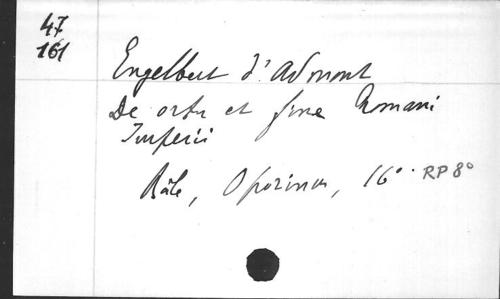 47
161
Engelbert d'Admont
De ortu et fine Romani
Imperii
Bâle, Oporinus, 16° RP 8°